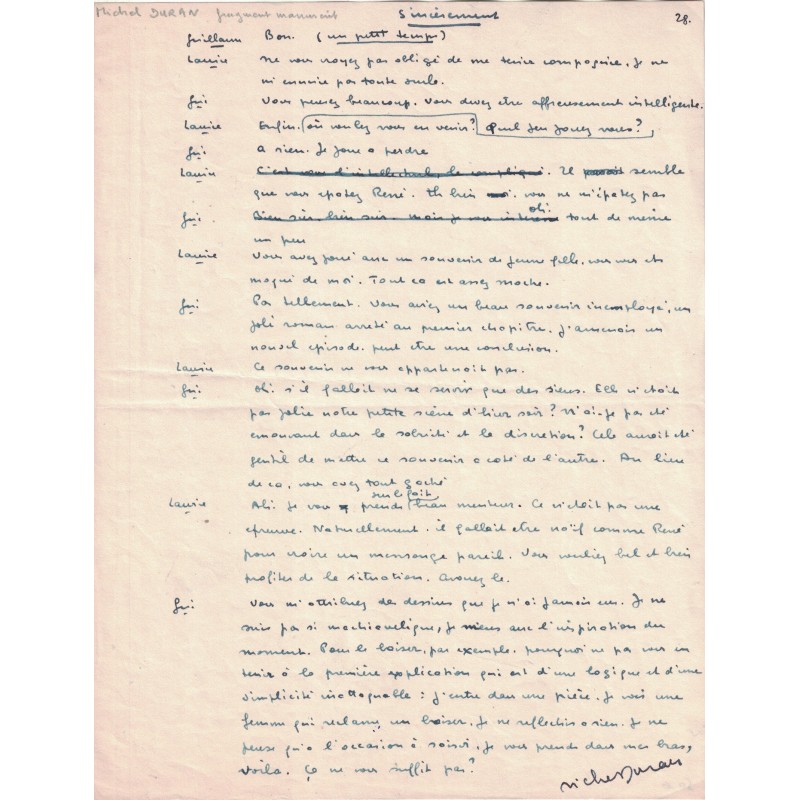 Michel DURAN fragment manuscrit Sincèrement 28.
Guillaum Bon. (un petit temps)
Laurice Ne vous croyez pas obligé de me tenir compagnie. Je ne
m'ennuie pas toute seule.
Gui Vous pensez beaucoup. Vous devez etre affreusement intelligente.
Laurice Enfin. où voulez vous en venir? Quel jeu jouez vous?
Gui a rien. Je joue a perdre
Laurice C'est vous d'intellectuel, de compliqué. Il parait semble
que vous epatez René. Eh bien moi. vous ne m'épatez pas
Gui. Bien sûr, bien sûr. mais je vous intéresse oh. tout de meme
un peu
Laurice Vous avez joué avec un souvenir de jeune fille, vous vous etes
moqué de moi. Tout ca est assez moche.
Gui: Pas tellement. Vous aviez un beau souvenir inemployé, un
joli roman arreté au premier chapitre. J'amenais un
nouvel episode. peut etre une conclusion.
Laurice Ce souvenir ne vous appartenait pas.
Gui: Oh. s'il fallait ne se servir que des siens. Elle n'était
pas jolie notre petite scène d'hier soir? N'ai-je pas été
emouvant dans la sobrieté et la discretion? Cela aurait été
gentil de mettre ce souvenir a coté de l'autre. Au lieu
de ca, vous avez tout gaché
Laurice Ah. Je vous prends sur le fait beau menteur. Ce n'était pas une
epreuve. Naturellement. il fallait etre naïf comme René
pour croire un mensonge pareil. Vous vouliez bel et bien
profiter de la situation. Avouez le.
Gui: Vous m'attribuez des desseins que je n'ai jamais eus. Je ne
suis pas si machiavelique, je mens avec l'inspiration du
moment. Pour le baiser, par exemple. pourquoi ne pas vous en
tenir à la première explication qui est d'une logique et d'une
simplicité inattaquable: j'entre dans une pièce. Je vois une
femme qui reclame un baiser. Je ne reflechis a rien. Je ne
pense qu'a l'occasion à saisir. Je vous prends dans mes bras,
voila. Ça ne vous suffit pas?
Michel Duran